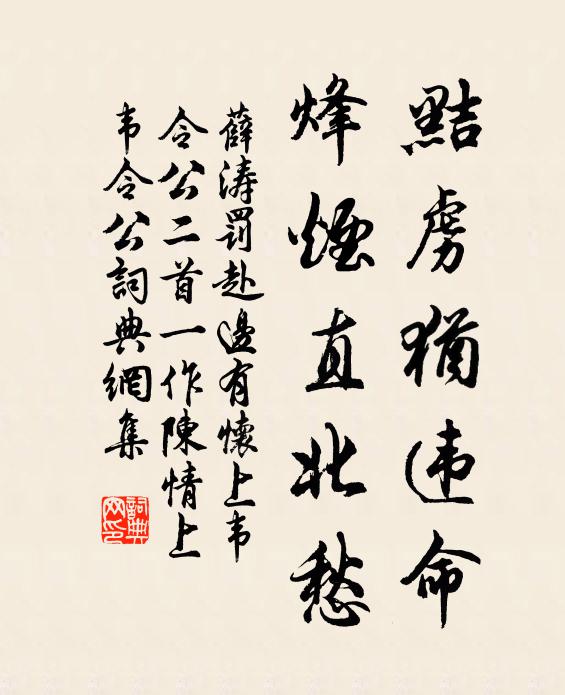 黠虏猶违命
烽煙直北愁
薛涛罰赴邊有懷上韦
令公二首一作陳情上
韦令公詞典網集
詞典网印